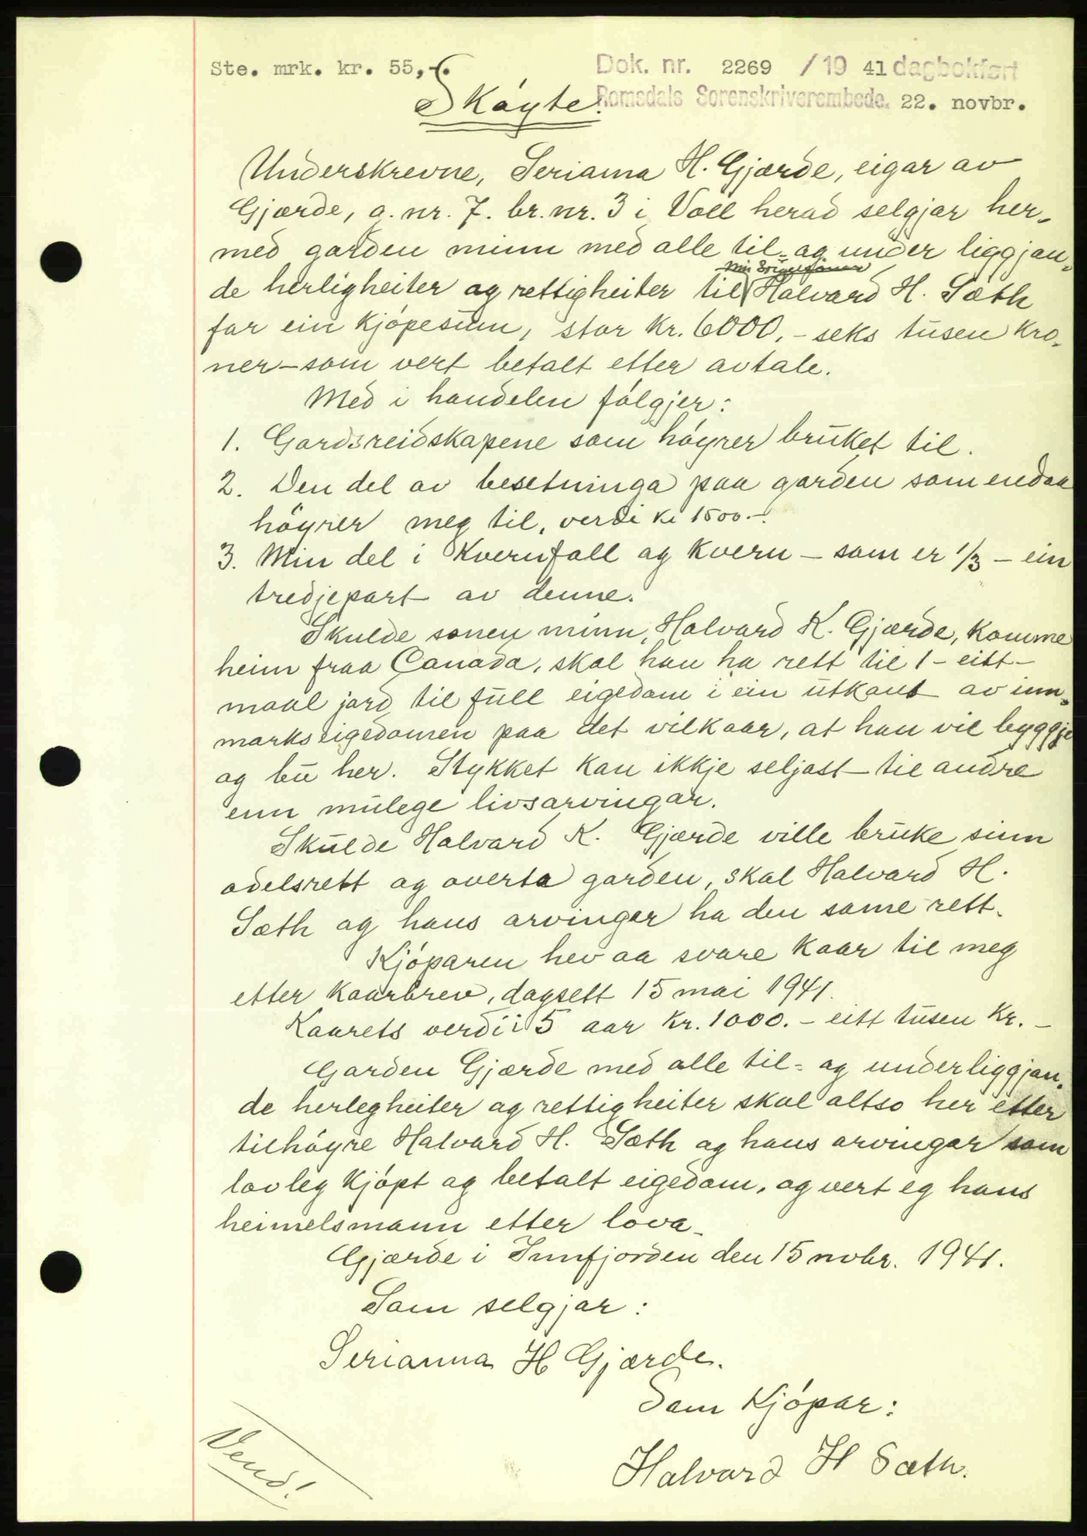 Ste. mrk. kr. 55,-. Dok. nr. 2269 / 19 41 dagbokført
Skøyte. Romsdals Sorenskriverembede. 22. novbr.
Underskrevne, Serianna H. Gjærde, eigar av
Gjærde, g. nr. 7. br. nr. 3 i Voll herad selgjar her-
med garden minn med alle til- og under liggjan-
de herligheiter og rettigheiter til Halvard H. Sæth
for ein kjøpesum, stor kr. 6000,- seks tusen kro-
ner - som vert betalt etter avtale.
Med i handelen følgjer:
1. Gardsreidskapene som høyrer bruket til.
2. Den del av besetninga paa garden som endaa
høyrer meg til, verdi kr 1500.-.
3. Min del i Kvernfall og Kvern - som er 1/3 - ein
tredjepart av denne.
Skulde sonen minn, Halvard K. Gjærde, komme
heim fraa Canada, skal han ha rett til 1 - eitt -
maal jord til full eigedom i ein utkant av inn-
markseigedomen paa det vilkaar, at han vil byggje
og bu her. Stykket kan ikkje seljast til andre
enn mulege livsarvingar.
Skulde Halvard K. Gjærde ville bruke sinn
odelsrett og overta garden, skal Halvard H.
Sæth og hans arvingar ha den same rett.
Kjøparen hev aa svare Kaar til meg
etter Kaarbrev, dagsett 15 mai 1941.
Kaarets verdi i 5 aar kr. 1000.- eitt tusen kr. -
Garden Gjærde med alle til- og underliggjan-
de herlegheiter og rettigheiter skal altso her etter
tilhøyre Halvard H. Sæth og hans arvingar som
lovleg kjøpt og betalt eigedom, og vert eg hans
heimelsmann etter lova.
Gjærde i Innfjorden den 15 novbr. 1941.
Som selgjar:
Serianna H Gjærde.
Som Kjøpar:
Halvard H Sæth.
Vend!